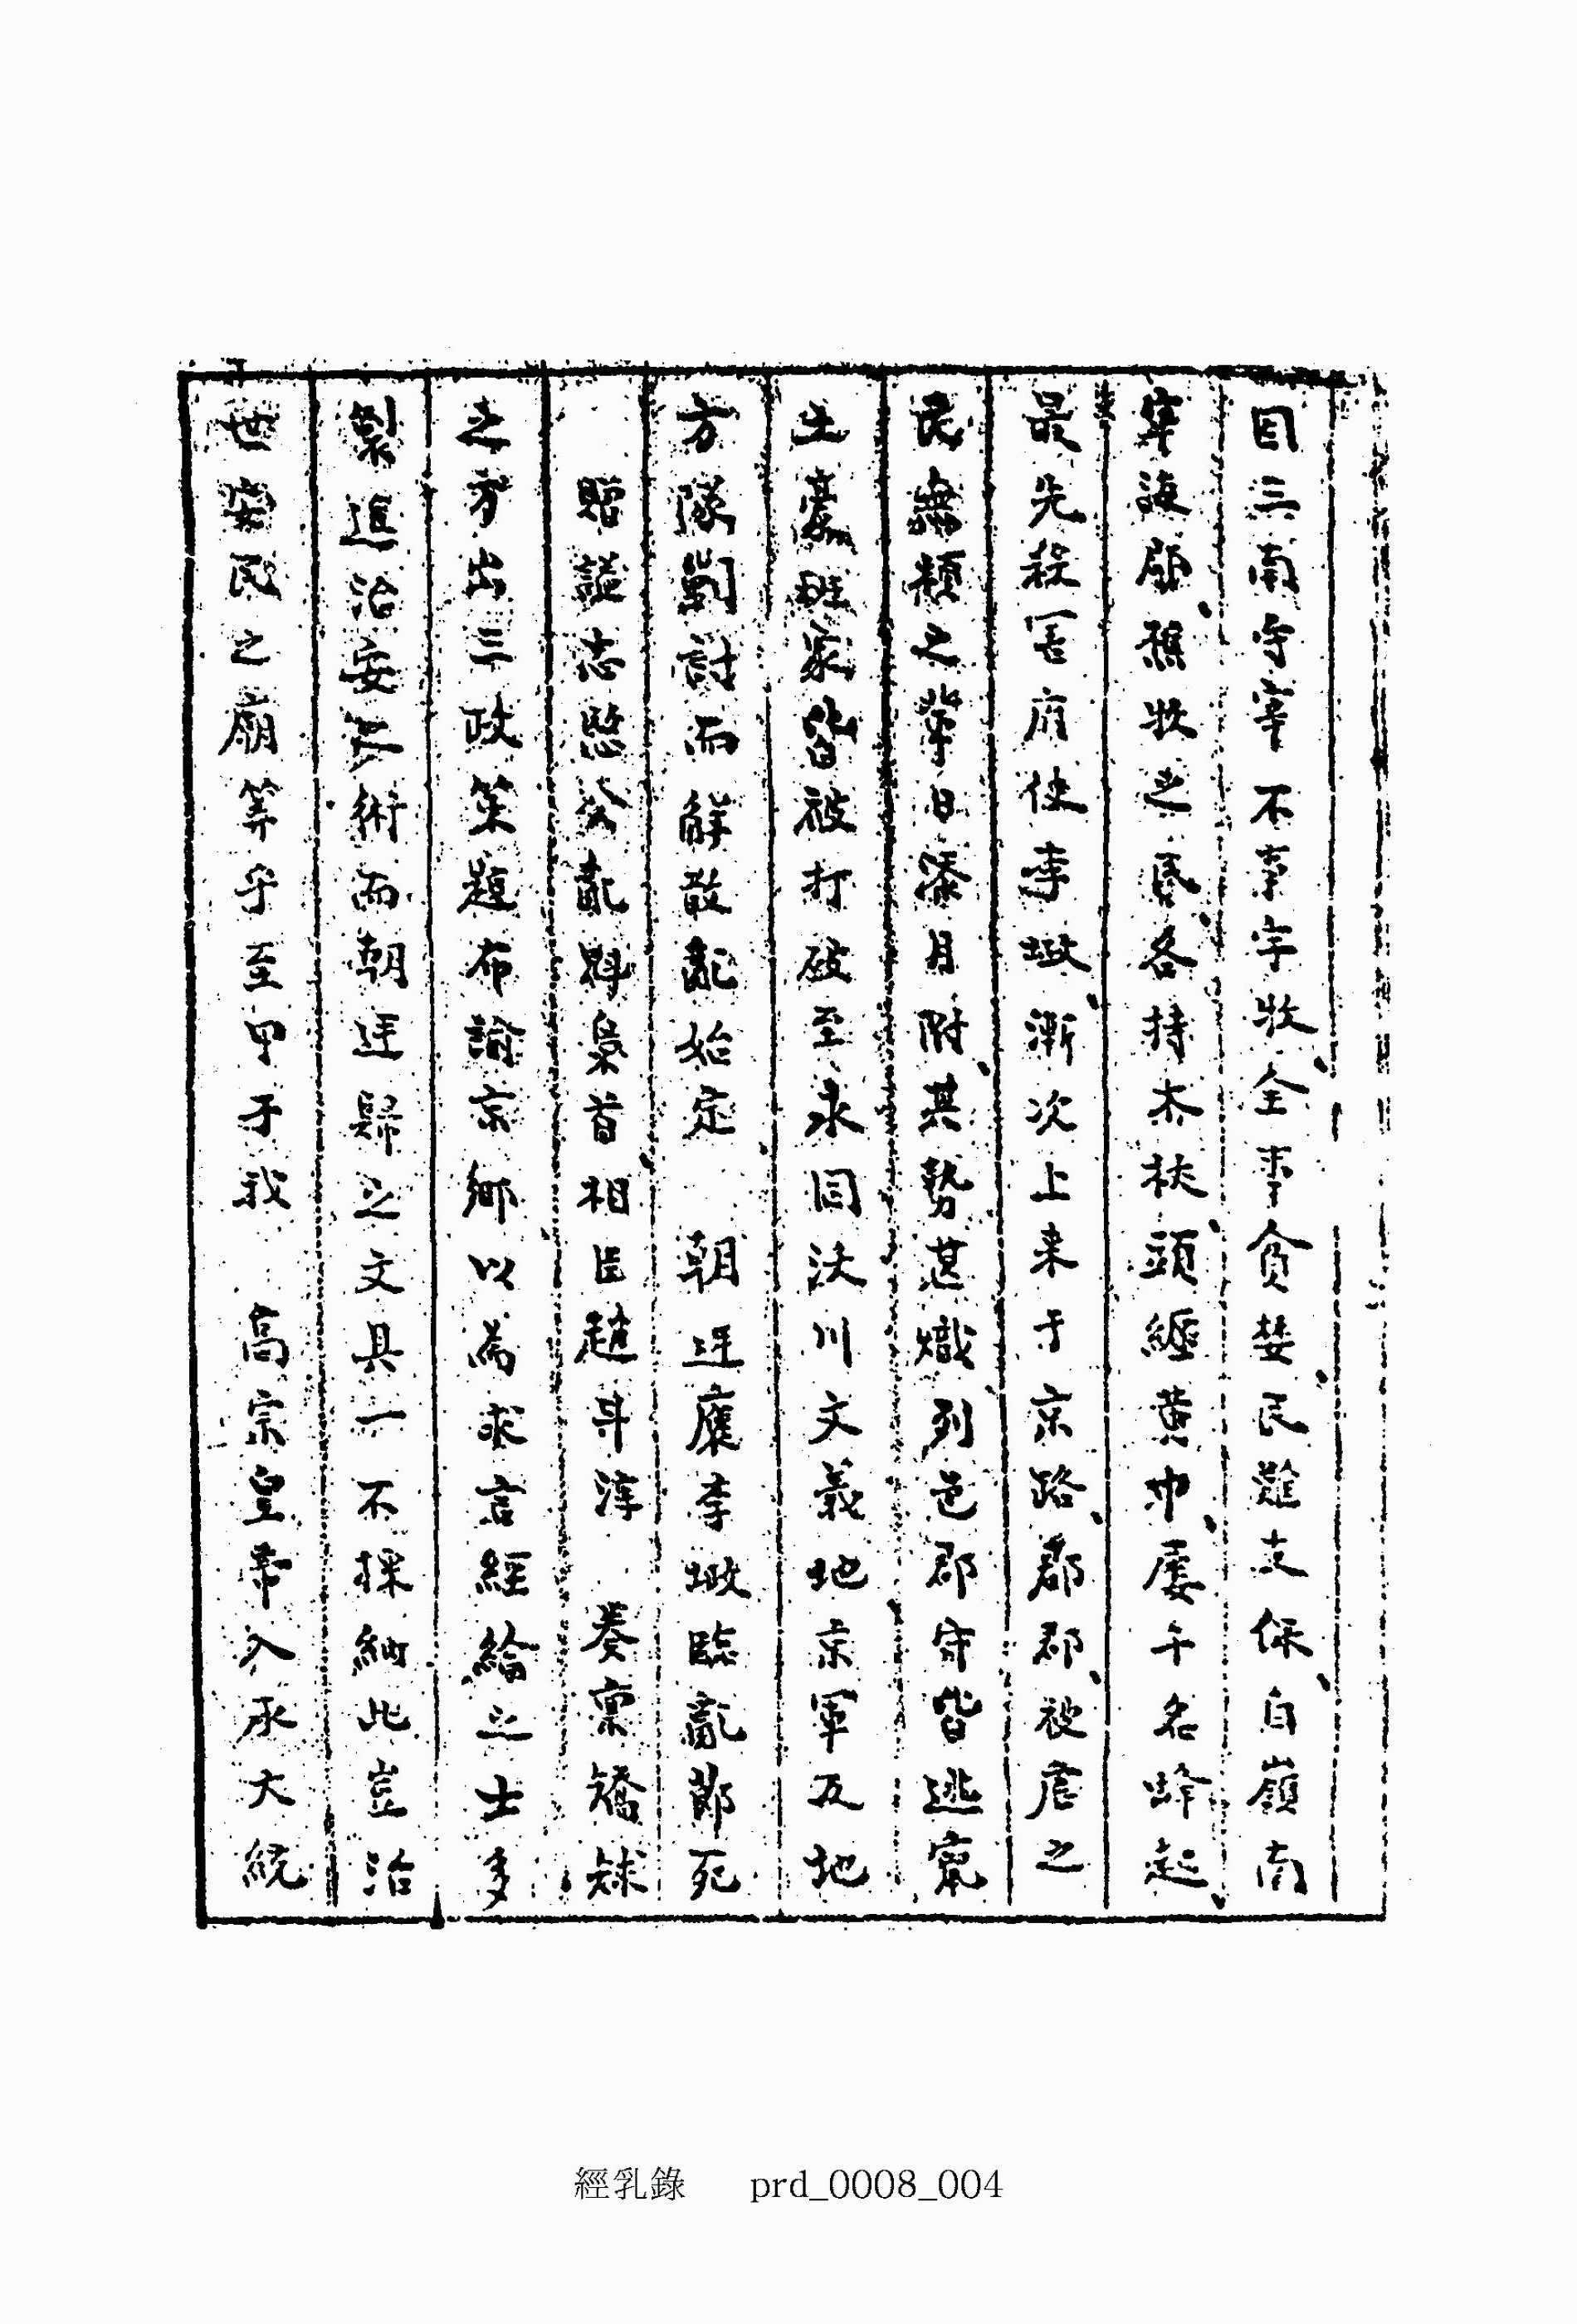 因三南守宰不率字牧全事貪婪民難支保自嶺南
寧海府㩴牧之民各持木杖頭纏黃巾屢千名蜂起
最先殺害府使李㙉漸次上來于京路郡郡被虐之
民譁類之輩日添月附其勢甚熾列邑郡守皆逃竄
土豪班家皆被打破至永同沃川文義地京軍五地
方隊勦討而解散亂始定 朝廷褒李㙉臨亂節死
贈諡志愍公亂魁梟首相臣趙斗淳 奏稟矯捄
之方出三政策題布諭京鄉以為求言經綸之士多
製進治安之術而朝廷歸之文具一不採納此豈治
世安民之廟筭乎至甲子我 高宗皇帝入承大統
經乳錄 prd_0008_004